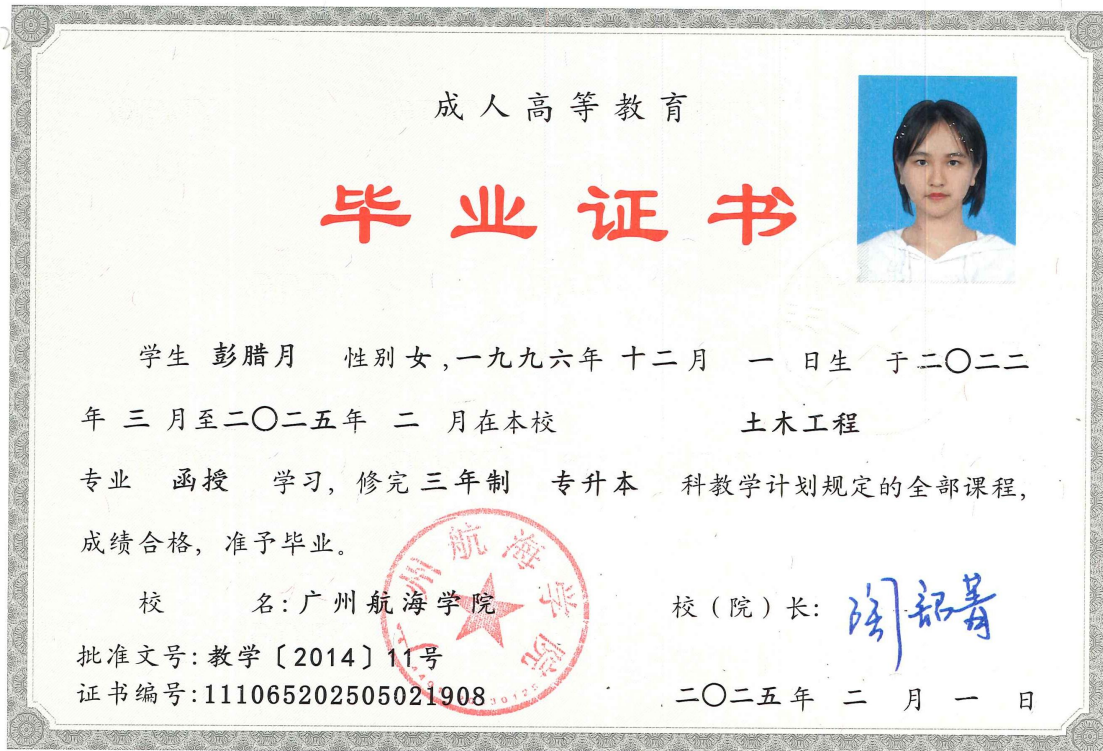 成人高等教育
毕业证书
学生 彭腊月 性别 女,一九九六年 十二月 一 日生 于二〇二二
年 三 月至二〇二五年 二 月在本校 土木工程
专业 函授 学习, 修完 三年制 专升本 科教学计划规定的全部课程,
成绩合格, 准予毕业。
校 名: 广州航海学院
校（院）长: 陶韶菁
批准文号: 教学〔2014〕11号
证书编号: 111065202505021908
二〇二五年 二 月 一 日
广州航海学院